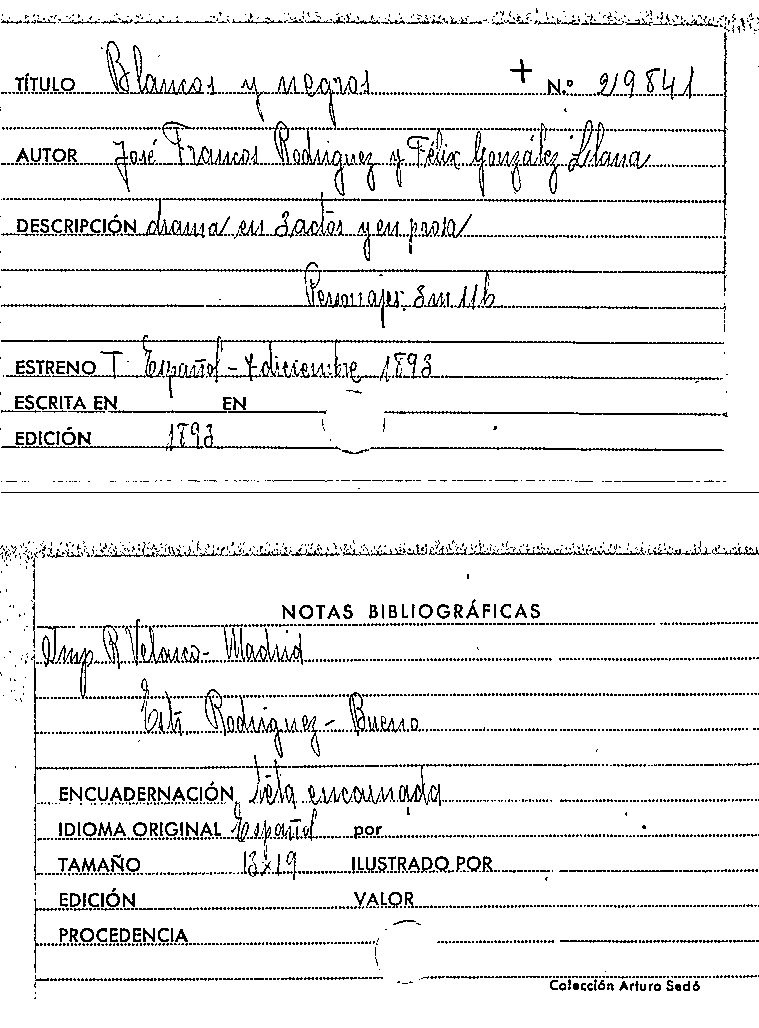 TÍTULO Blancos y negros + N.º 29841
AUTOR José Francos Rodríguez y Félix González Llana
DESCRIPCIÓN drama en 3 actos y en prosa
Personajes: 3m 11h
ESTRENO T. Español - 7 diciembre 1893
ESCRITA EN EN
EDICIÓN 1893
NOTAS BIBLIOGRÁFICAS
Imp R Velasco - Madrid
Rodriguez - Bueno
ENCUADERNACIÓN tela encarnada
IDIOMA ORIGINAL Español por
TAMAÑO 13x19 ILUSTRADO POR
EDICIÓN VALOR
PROCEDENCIA
Colección Arturo Sedó